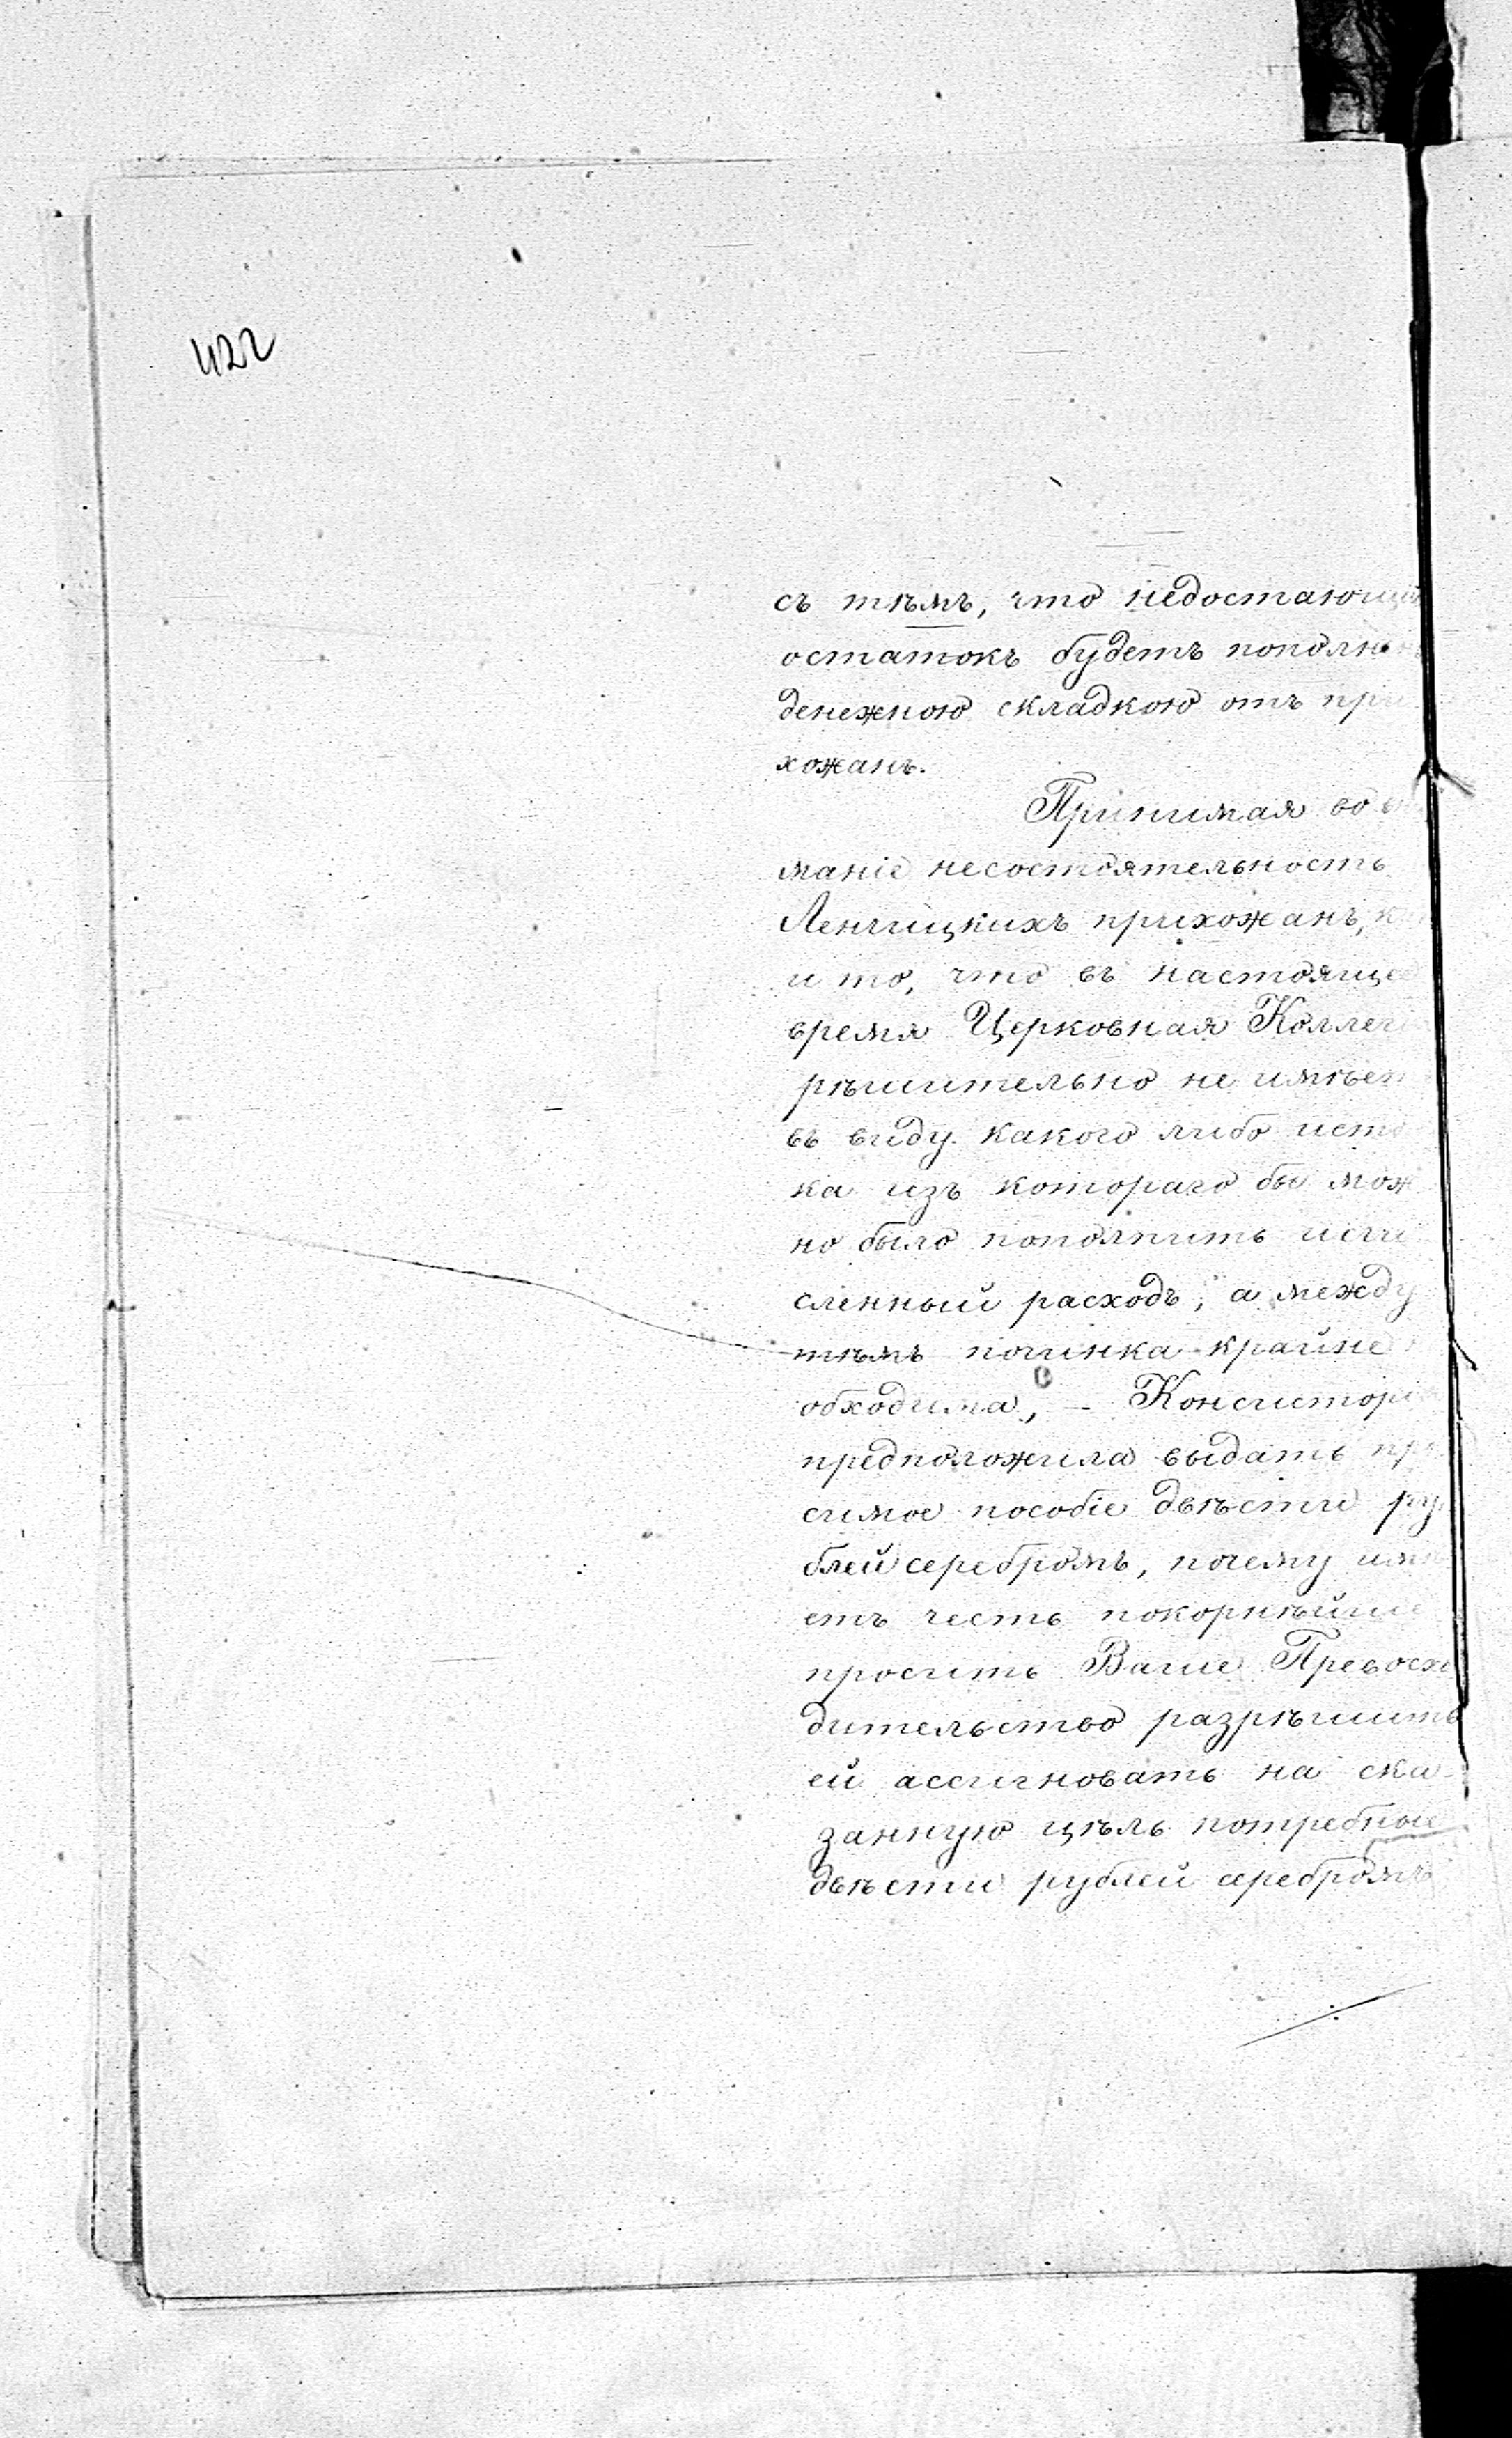 422
съ тѣмъ, что недостающій
остатокъ будетъ пополнен
денежною складкою отъ при
хожанъ.
Принимая во в
маніе несостоятельность
Ленчицкихъ прихожанъ,
и то, что въ настояще
время Церковная Коллегі
рѣшительно не имѣет
въ виду какого либо исто
ка изъ котораго бы мож
но было пополнить исчи
сленный расходъ, а между
тѣмъ починка крайне
обходима, — Консисторі
предположила выдать пр
симое пособіе двѣсти ру
блей серебромъ, почему имѣ
етъ честь покорнѣйше
просить Ваше Превосхо
дительство разрѣшить
ей ассигновать на ска-
занную цѣль потребные
двѣсти рублей серебромъ